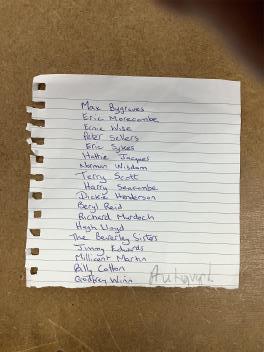 Max Bygraves
Eric Morecambe
Ernie Wise
Peter Sellers
Eric Sykes
Hattie Jacques
Norman Wisdom
Terry Scott
Harry Seacombe
Dickie Henderson
Beryl Reid
Richard Murdoch
Hugh Lloyd
The Beverley Sisters
Jimmy Edwards
Millicent Martin
Billy Cotton
Godfrey Winn